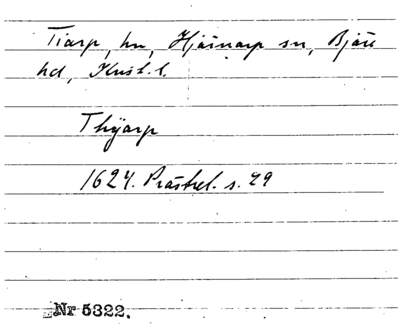 Tiarp, hn, Hjärnarp sn, Bjäre
hd, Krist. l.
Thÿarp
1624. Prästrel. s. 29
Nr 5322.